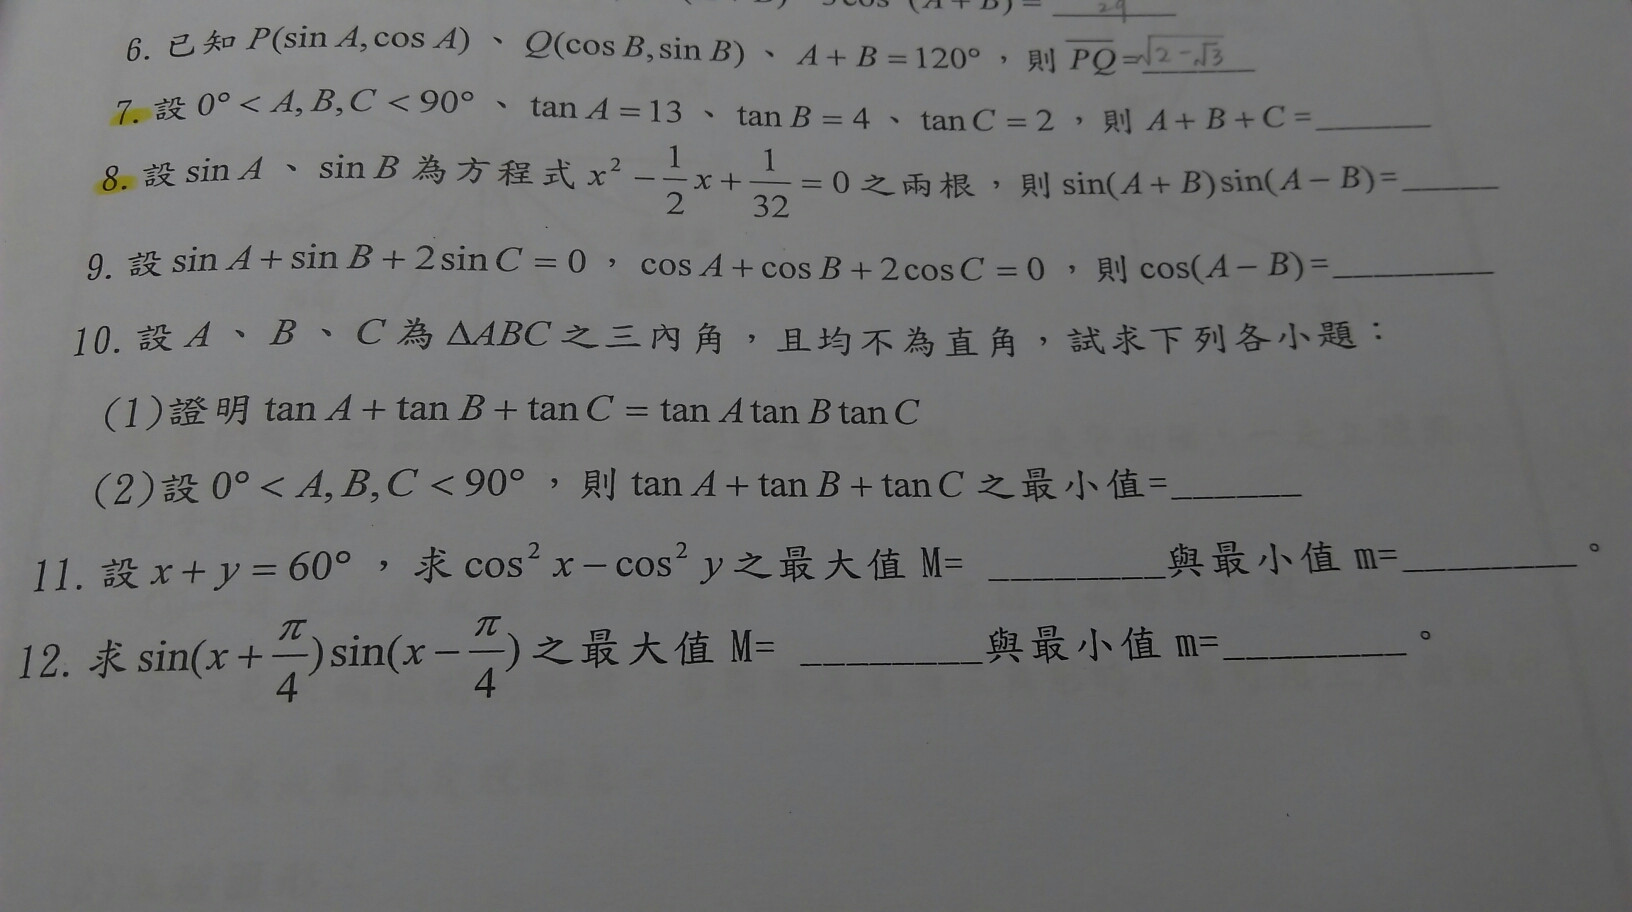 (A+B)= 29
6. 已知 P(sin A, cos A)、Q(cos B, sin B)、A + B = 120°，則 PQ = √2-√3
7. 設 0° < A, B, C < 90°、tan A = 13、tan B = 4、tan C = 2，則 A + B + C = ______
8. 設 sin A、sin B 為方程式 x² - 1/2 x + 1/32 = 0 之兩根，則 sin(A + B)sin(A - B)= ______
9. 設 sin A + sin B + 2 sin C = 0，cos A + cos B + 2 cos C = 0，則 cos(A - B)= ______
10. 設 A、B、C 為 ΔABC 之三內角，且均不為直角，試求下列各小題：
(1)證明 tan A + tan B + tan C = tan A tan B tan C
(2)設 0° < A, B, C < 90°，則 tan A + tan B + tan C 之最小值= ______
11. 設 x + y = 60°，求 cos² x - cos² y 之最大值 M= ______與最小值 m= ______。
12. 求 sin(x + π/4)sin(x - π/4) 之最大值 M= ______與最小值 m= ______。